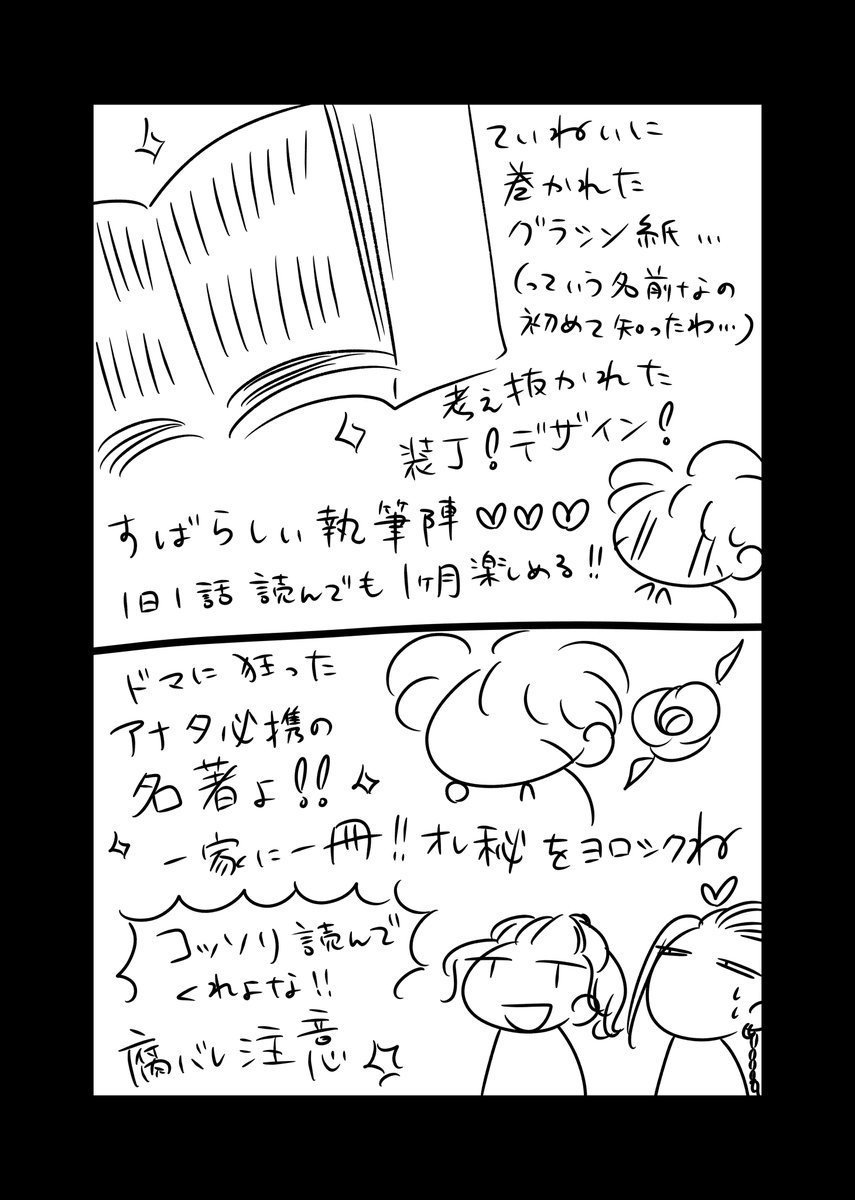 ていねいに
巻かれた
グラシン紙…
(っていう名前なの
初めて知ったわ…)
考え抜かれた
装丁!デザイン!
すばらしい執筆陣♡♡♡
1日1話読んでも1ヶ月楽しめる!!
ドマに狂った
アナタ必携の
名著よ!!
一家に一冊!!オレ秘をヨロシクね
コッソリ読んで
くれよな!!
腐バレ注意